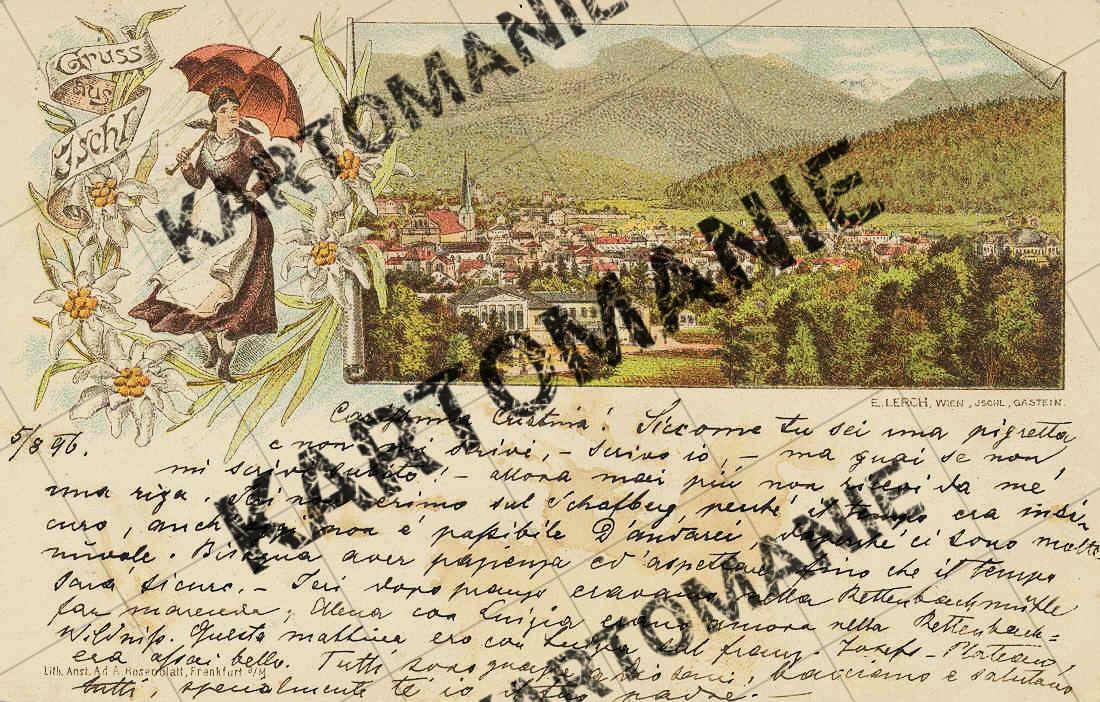 Gruss
aus
Ischl
KARTOMANIE
KARTOMANIE
KARTOMANIE
E. LERCH, WIEN, JSCHL, GASTEIN.
5/8 96.
Carissima Cristina! Siccome tu sei una pigretta
e non mi scrivi, – scrivo io, – ma guai se non
mi scrivi – allora mai più non ricevi da me
una riga. sul Schafberg, perché il tempo era insi-
curo, anch oggi non è possibile D'andarci, ci sono molte
nuvole. Bisogna aver pazienza ed aspettare fino che il tempo
sara sicuro. – Ieri dopo pranzo eravamo nella Rettenbachmühle
far marenda, Alena con Luigia erano ancora nella Rettenbach=
Wildniss. Questa mattina ero con Luigia sul franz-Josefs-Plateau,
era assai bello. Tutti sono , baciamo e salutano
tutti, specialmente te io il tuo padre. –
Lith. Anst. Ad. A. Rosenblatt, Frankfurt a/M